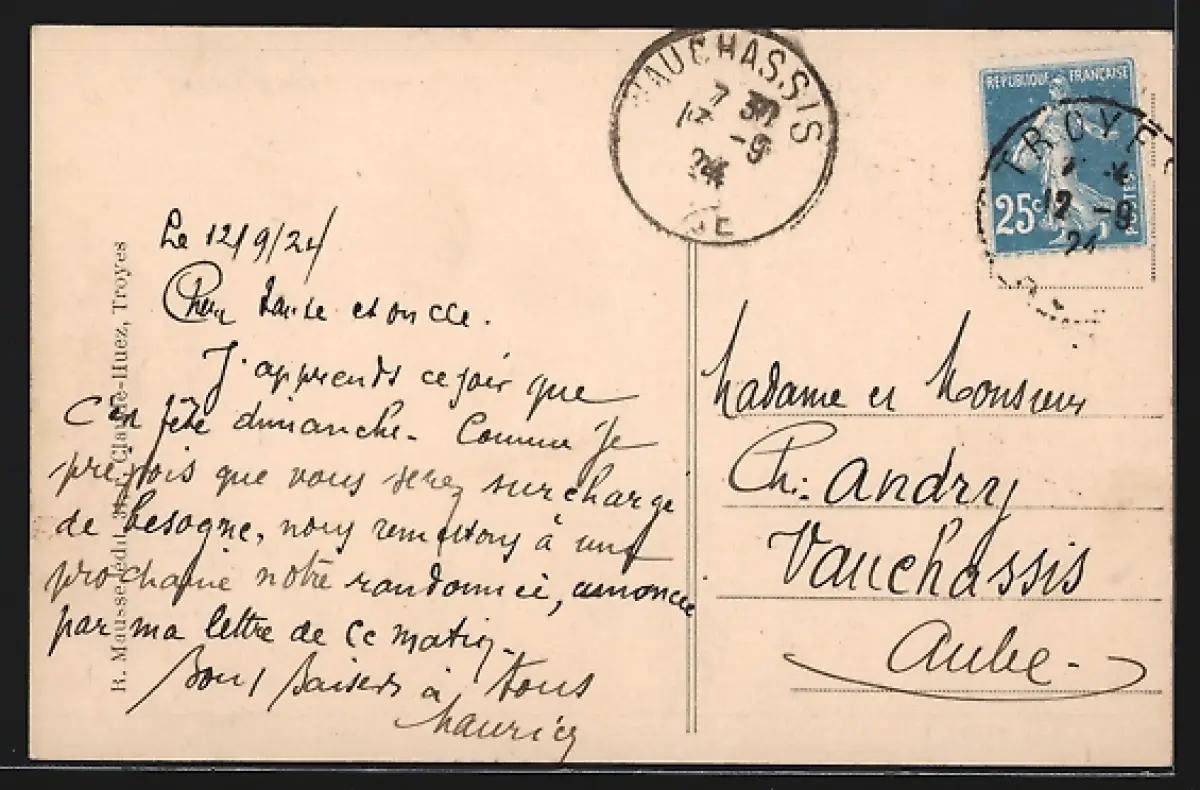 VAUCHASSIS
7 30
12 -9
24
BE
RÉPUBLIQUE FRANÇAISE
25c
POSTES
TROYES
12 -9
24
Le 12/9/24
Chers tante et oncle.
J'apprends ce soir que
c'est fête dimanche. Comme je
prévois que vous serez surchargé
de besogne, nous remettons à une
prochaine notre randonnée, annoncée
par ma lettre de ce matin.
Bons baisers à tous
Maurice
Madame et Monsieur
Ch. Andry
Vauchassis
Aube.
R. Mausse édit. Claude-Huez, Troyes